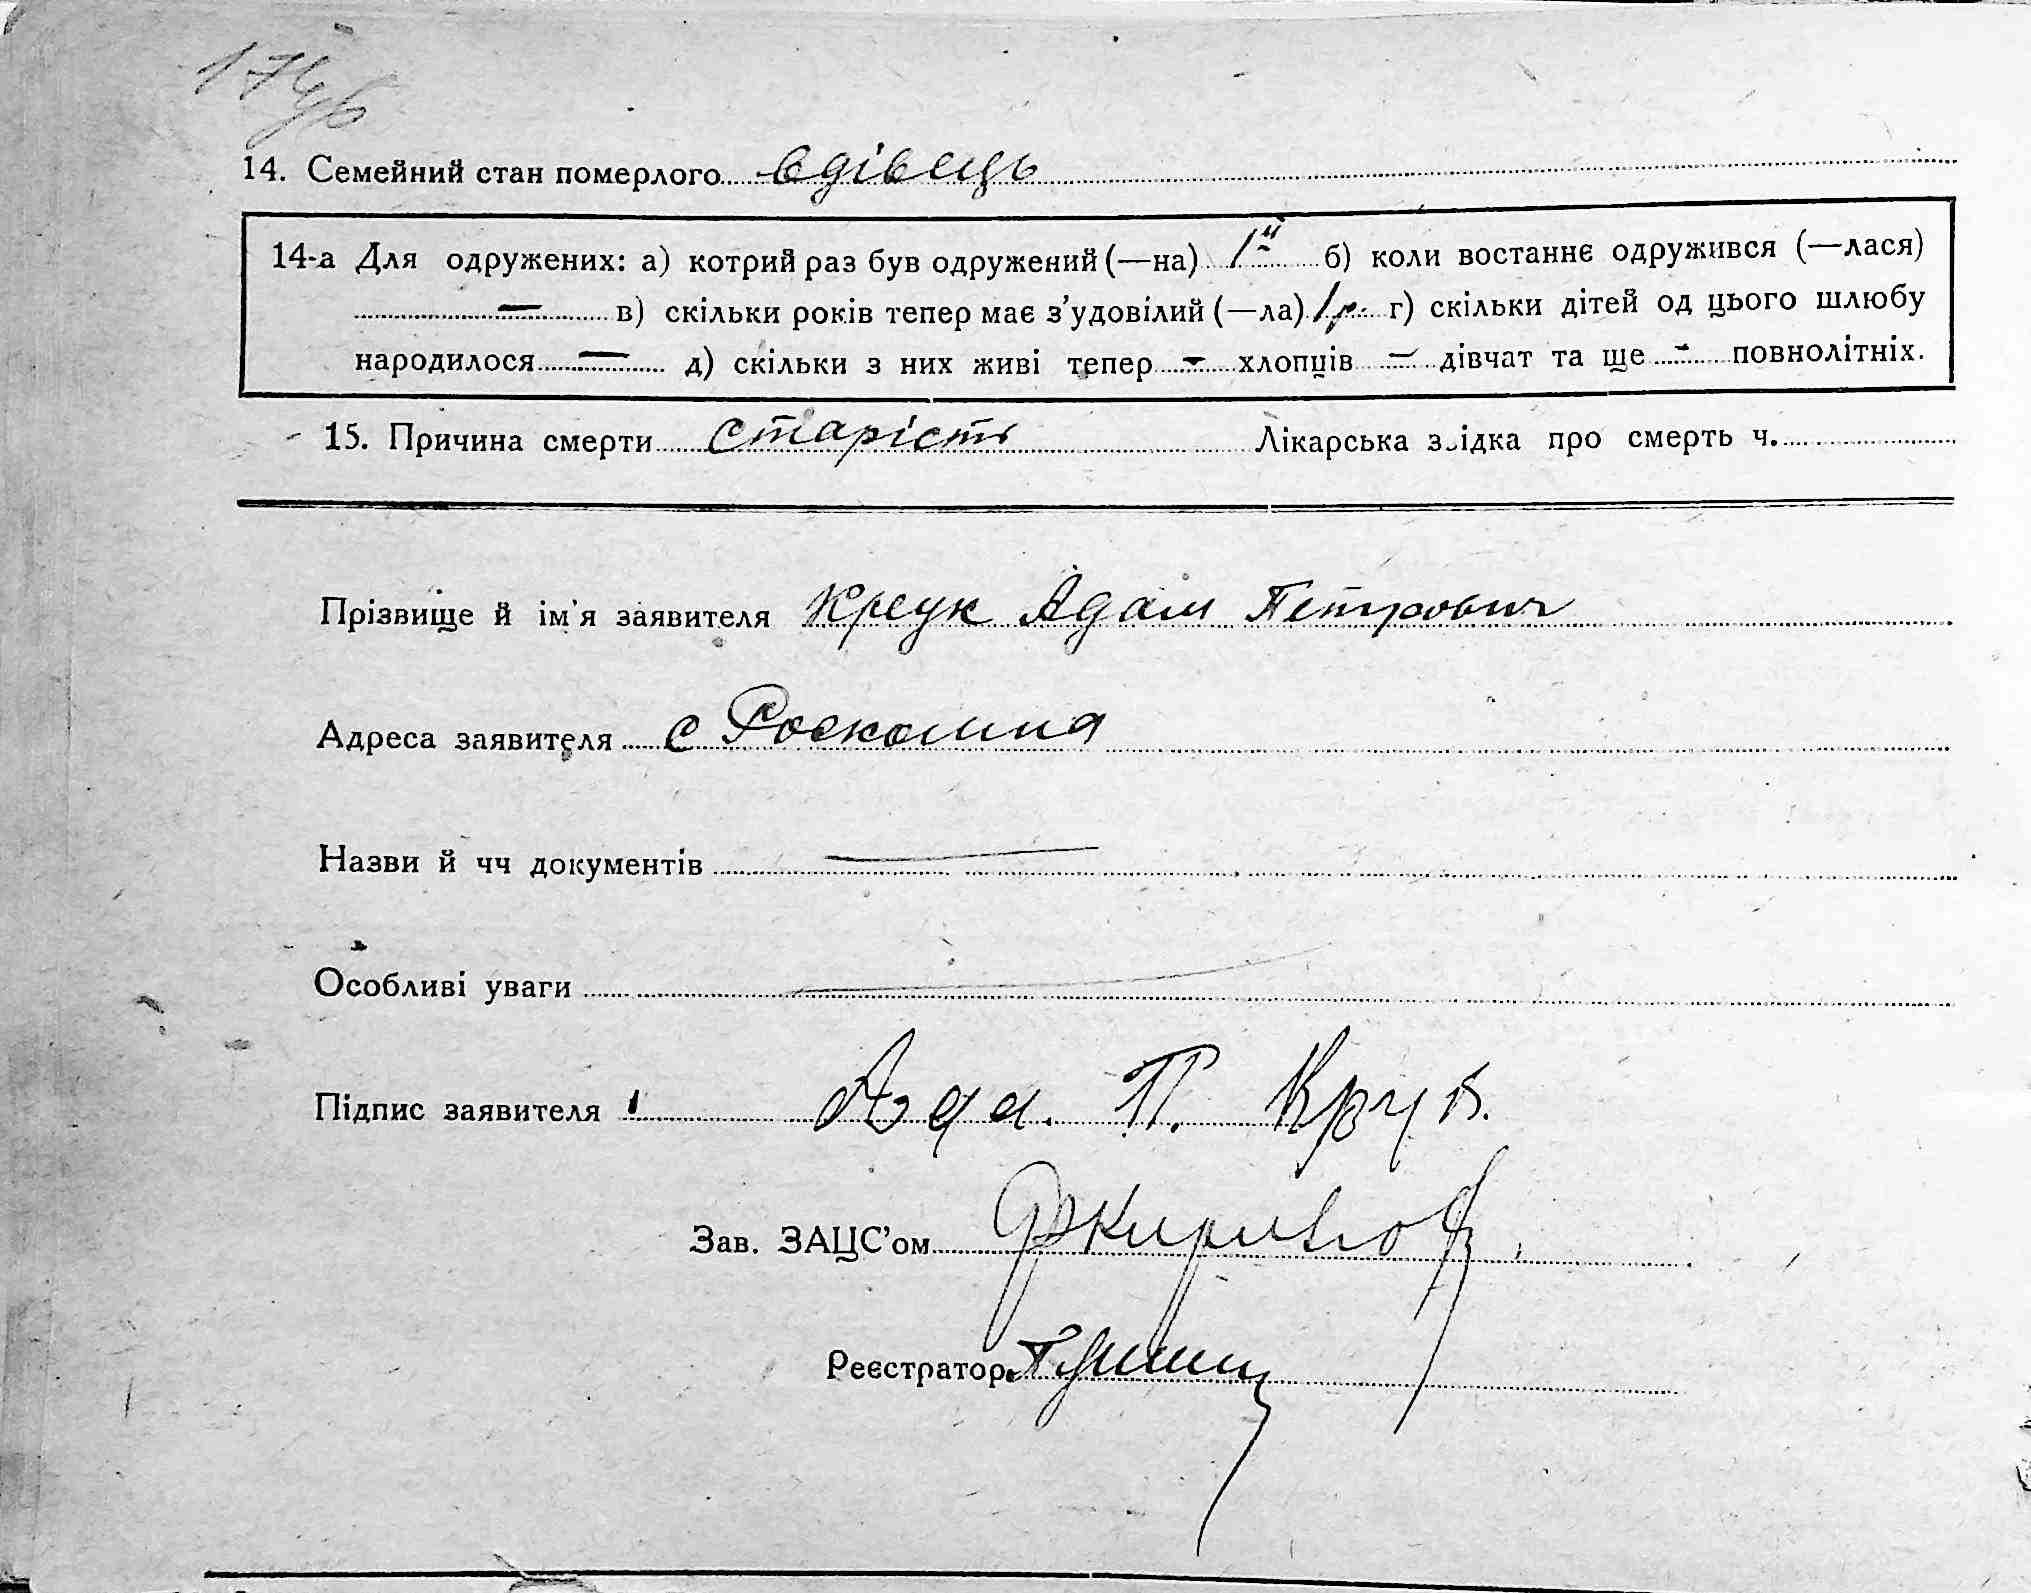 174б
14. Семейний стан померлого вдівець
14-а Для одружених: а) котрий раз був одружений (—на) 1й б) коли востаннє одружився (—лася)
— в) скільки років тепер має з’удовілий (—ла) 1 р. г) скільки дітей од цього шлюбу
народилося — д) скільки з них живі тепер — хлопців — дівчат та ще — повнолітніх.
15. Причина смерти старість Лікарська звідка про смерть ч.
Прізвище й ім'я заявителя Креук Адам Петрович
Адреса заявителя с
Назви й чч документів —
Особливі уваги —
Підпис заявителя Ада. П. Крук.
Зав. ЗАЦС’ом
Реєстратор